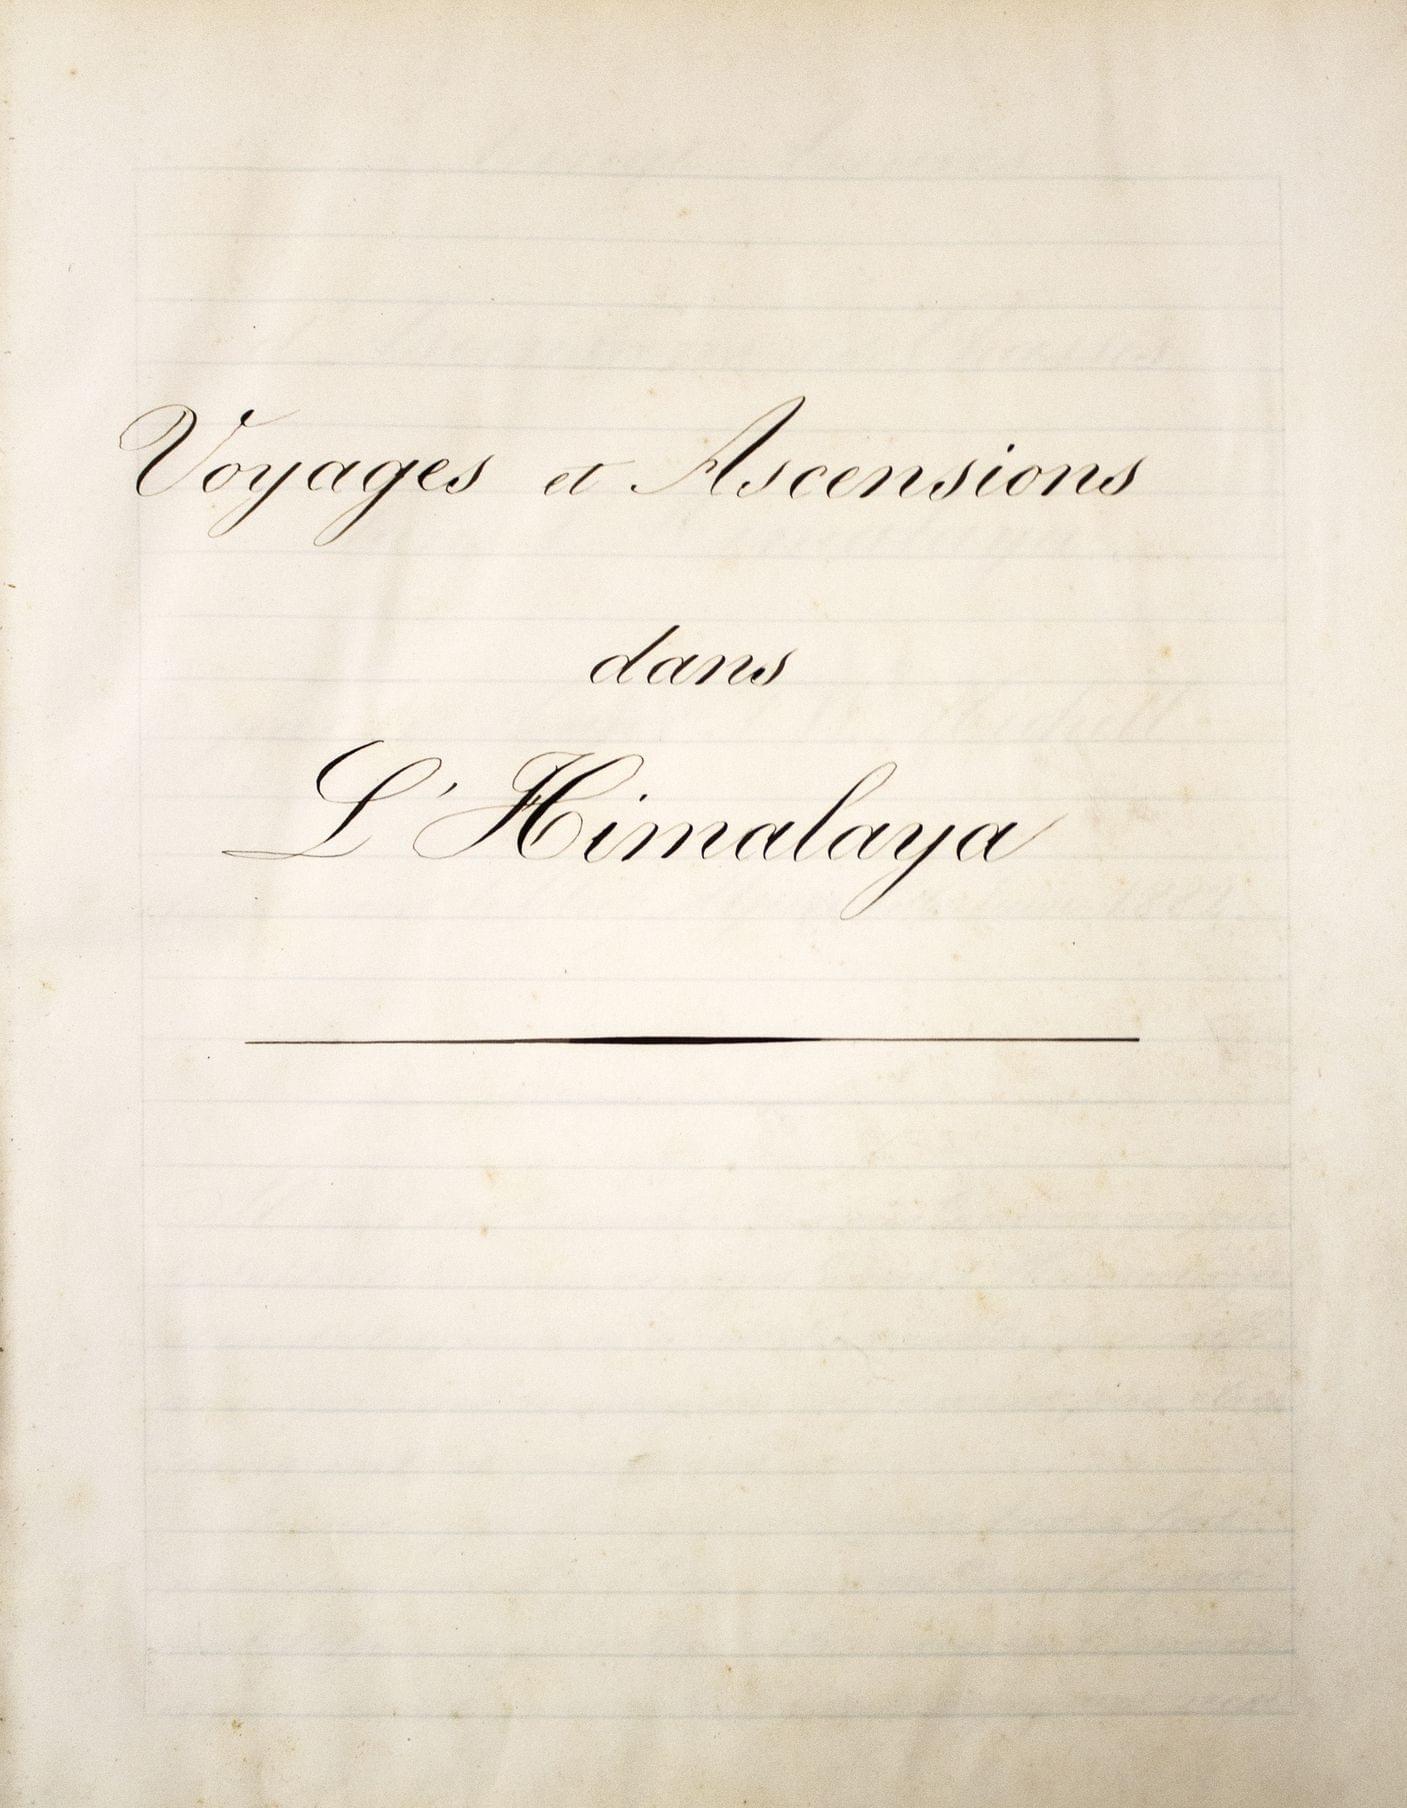 Voyages et Ascensions
dans
L'Himalaya